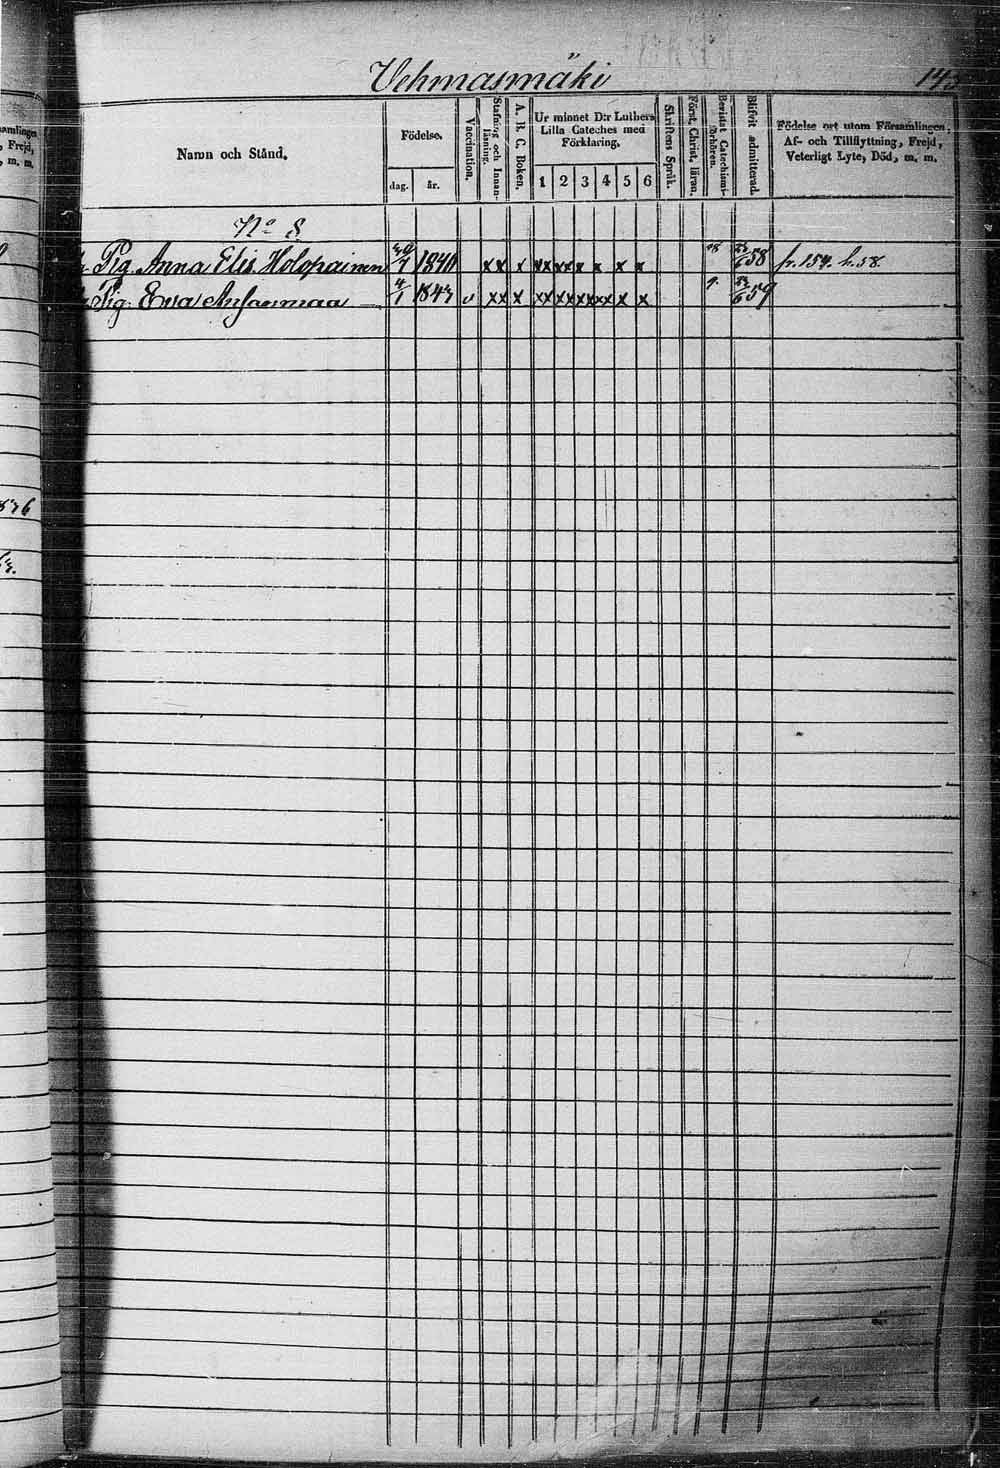 Vehmasmäki
Namn och Stånd.
Födelse.
dag. år.
Vaccination.
Stafning och Innan-
läsning.
A. B. C. Boken.
Ur minnet D:r Luthers
Lilla Cateches med
Förklaring.
1 2 3 4 5 6
Skriftens Språk.
Först. Christ. läran.
Bevistat Catechismi-
förhören.
Blifvit admitterad.
Födelse ort utom Församlingen,
Af- och Tillflyttning, Frejd,
Veterligt Lyte, Död, m. m.
No 8
Pig. Anna Elis. Holopainen 1840 xx x xx xx x x x x 58 p. 154. h. 58.
Pig. Ewa 4/1 1843 v xx x xx xx xx xx x x 59